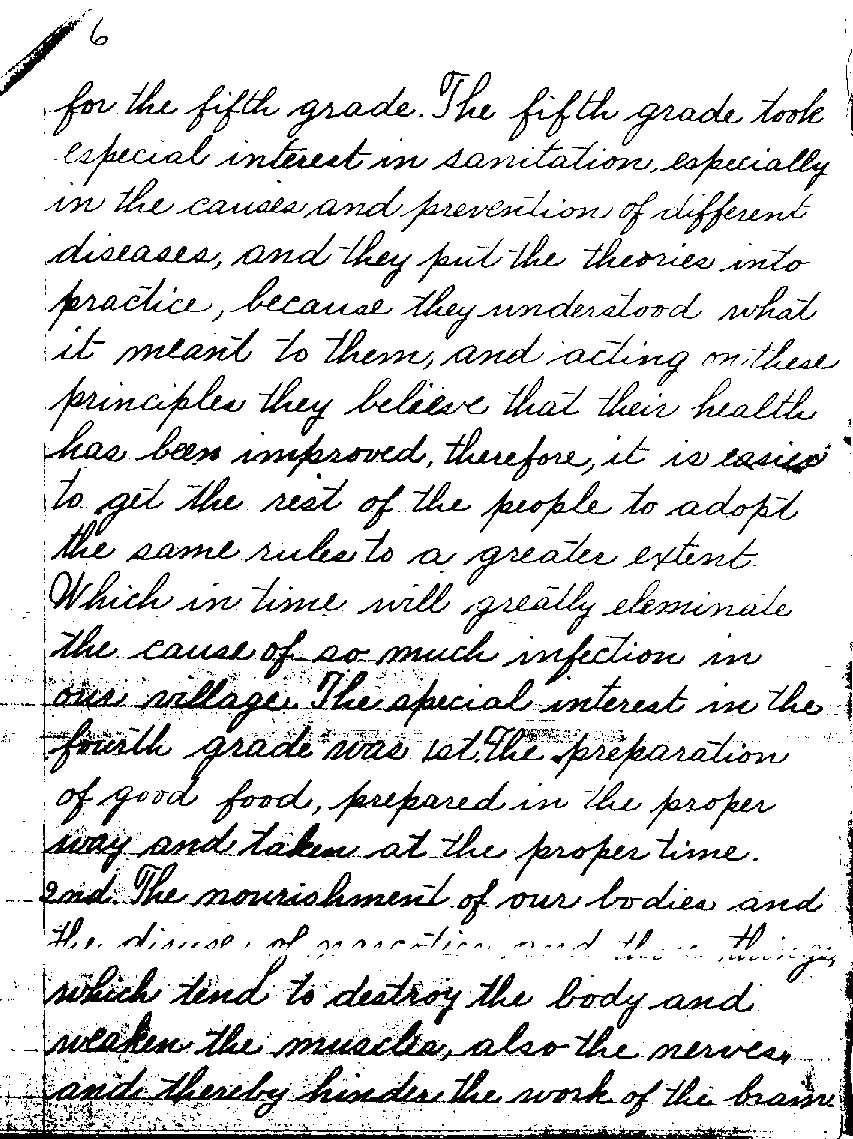 6
for the fifth grade. The fifth grade took
especial interest in sanitation, especially
in the causes and prevention of different
diseases, and they put the theories into
practice, because they understood what
it meant to them, and acting on these
principles they believe that their health
has been improved, therefore, it is easier
to get the rest of the people to adopt
the same rules to a greater extent.
Which in time will greatly eleminate
the cause of so much infection in
our village. The special interest in the
fourth grade was 1st. The preparation
of good food, prepared in the proper
way and taken at the proper time.
2nd. The nourishment of our bodies and
the disuse of narcotics and those things,
which tend to destroy the body and
weaken the muscles, also the nerves,
and thereby hinder the work of the brain